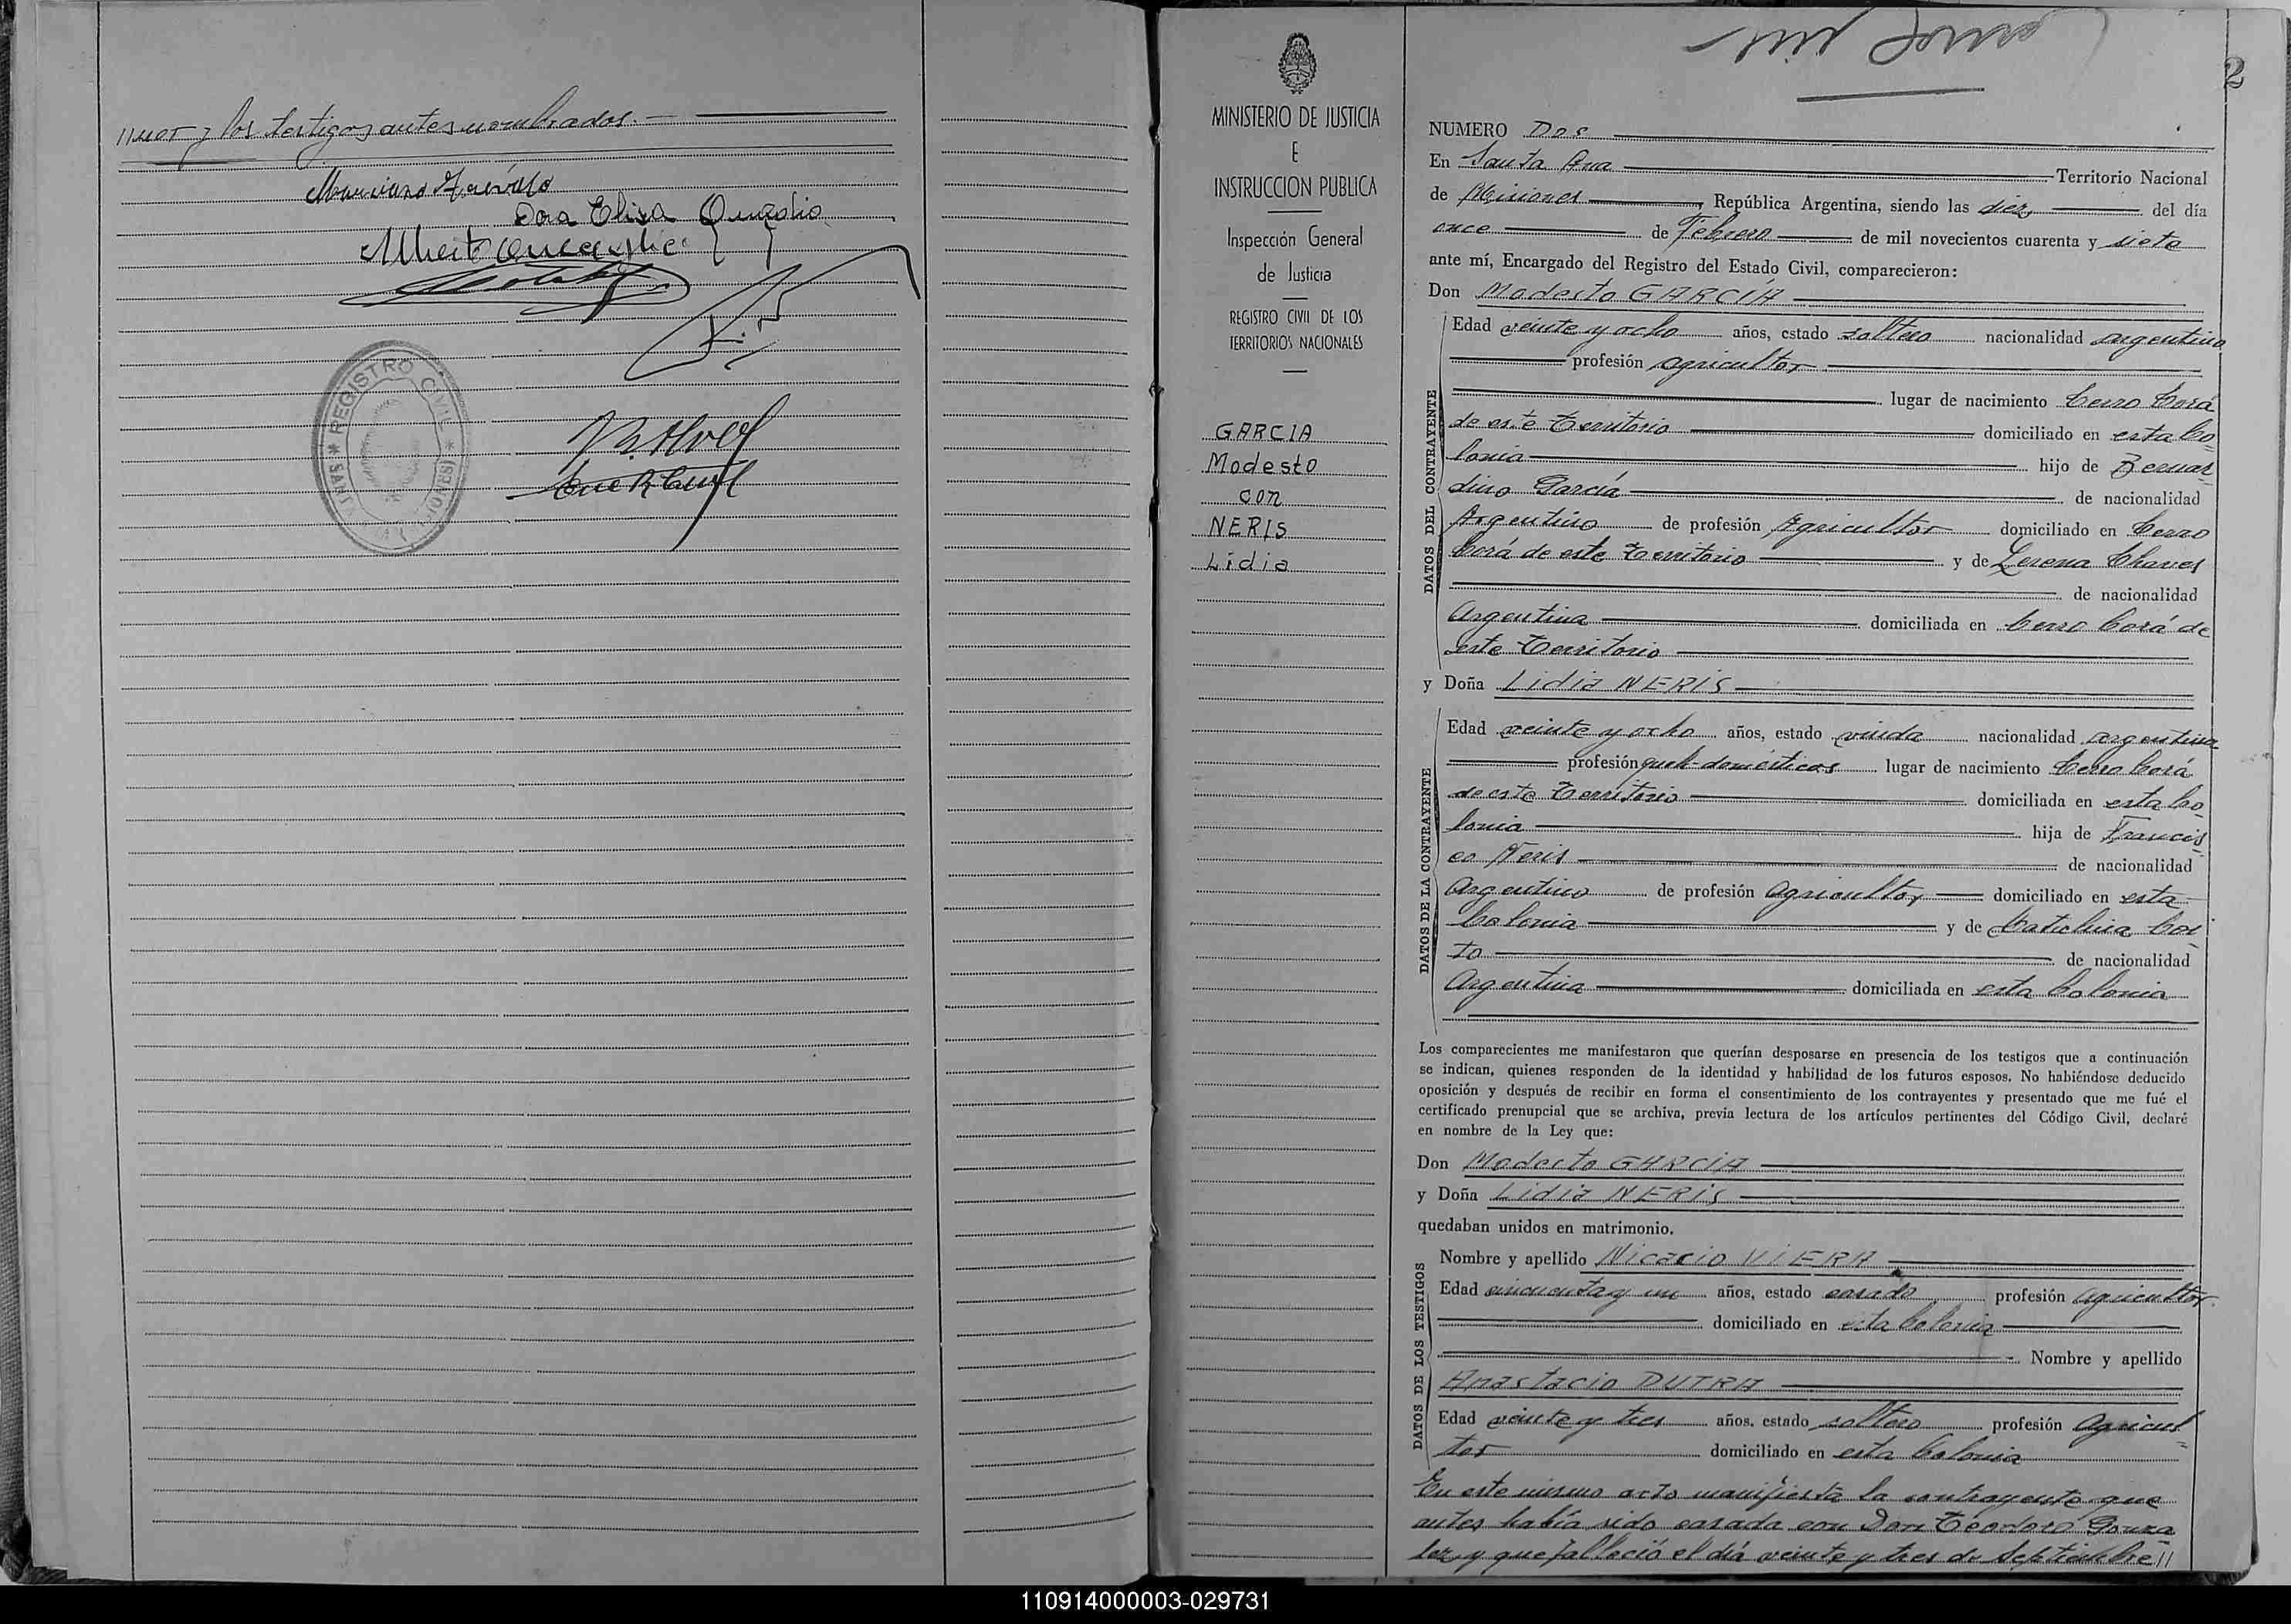 y los testigos antes nombrados.
Dora Elisa
REGISTRO CIVIL
MISIONES
SANTA ANA
2
MINISTERIO DE JUSTICIA
E
INSTRUCCION PUBLICA
Inspección General
de Justicia
REGISTRO CIVIL DE LOS
TERRITORIOS NACIONALES
GARCIA
Modesto
con
NERIS
Lidia
NUMERO Dos
En Santa Ana Territorio Nacional
de Misiones, República Argentina, siendo las diez del día
once de Febrero de mil novecientos cuarenta y siete
ante mí, Encargado del Registro del Estado Civil, comparecieron:
Don Modesto GARCÍA
DATOS DEL CONTRAYENTE
Edad veinte y ocho años, estado soltero nacionalidad argentino
profesión agricultor
lugar de nacimiento Cerro Corá
de este Territorio domiciliado en esta Co
lonia hijo de Bernar
dino García de nacionalidad
Argentino de profesión Agricultor domiciliado en Cerro
Corá de este Territorio y de Lerena Chaves
de nacionalidad
Argentina domiciliada en Cerro Corá de
este Territorio
y Doña Lidia NERIS
DATOS DE LA CONTRAYENTE
Edad veinte y ocho años, estado viuda nacionalidad argentina
profesión queh-domésticos lugar de nacimiento Cerro Corá
de este Territorio domiciliada en esta Co
lonia hija de Francis
co Neris de nacionalidad
Argentino de profesión agricultor domiciliado en esta
Colonia y de Catalina Cos
to de nacionalidad
Argentina domiciliada en esta Colonia
Los comparecientes me manifestaron que querían desposarse en presencia de los testigos que a continuación
se indican, quienes responden de la identidad y habilidad de los futuros esposos. No habiéndose deducido
oposición y después de recibir en forma el consentimiento de los contrayentes y presentado que me fué el
certificado prenupcial que se archiva, previa lectura de los artículos pertinentes del Código Civil, declaré
en nombre de la Ley que:
Don Modesto GARCIA
y Doña Lidia NERIS
quedaban unidos en matrimonio.
DATOS DE LOS TESTIGOS
Nombre y apellido Nicacio VIERA
Edad cincuenta y un años, estado casado profesión agricultor
domiciliado en esta Colonia
Nombre y apellido
Anastacio DUTRA
Edad veinte y tres años, estado soltero profesión Agricul
tor domiciliado en esta Colonia
En este mismo acto manifiesta la contrayente que
antes había sido casada con Don Teodoro Gonza
lez y que falleció el día veinte y tres de Septiembre //
110914000003-029731